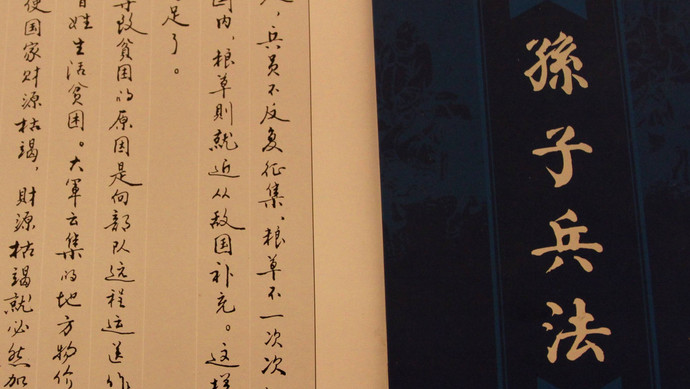 孫子兵法
兵员不反复征集、粮草不一次次
国内,粮草则就近从敌国补充。这样
足了。
导致贫困的原因是向部队远程运送作
百姓生活贫困。大军云集的地方物价
使国家财源枯竭,财源枯竭就必然加